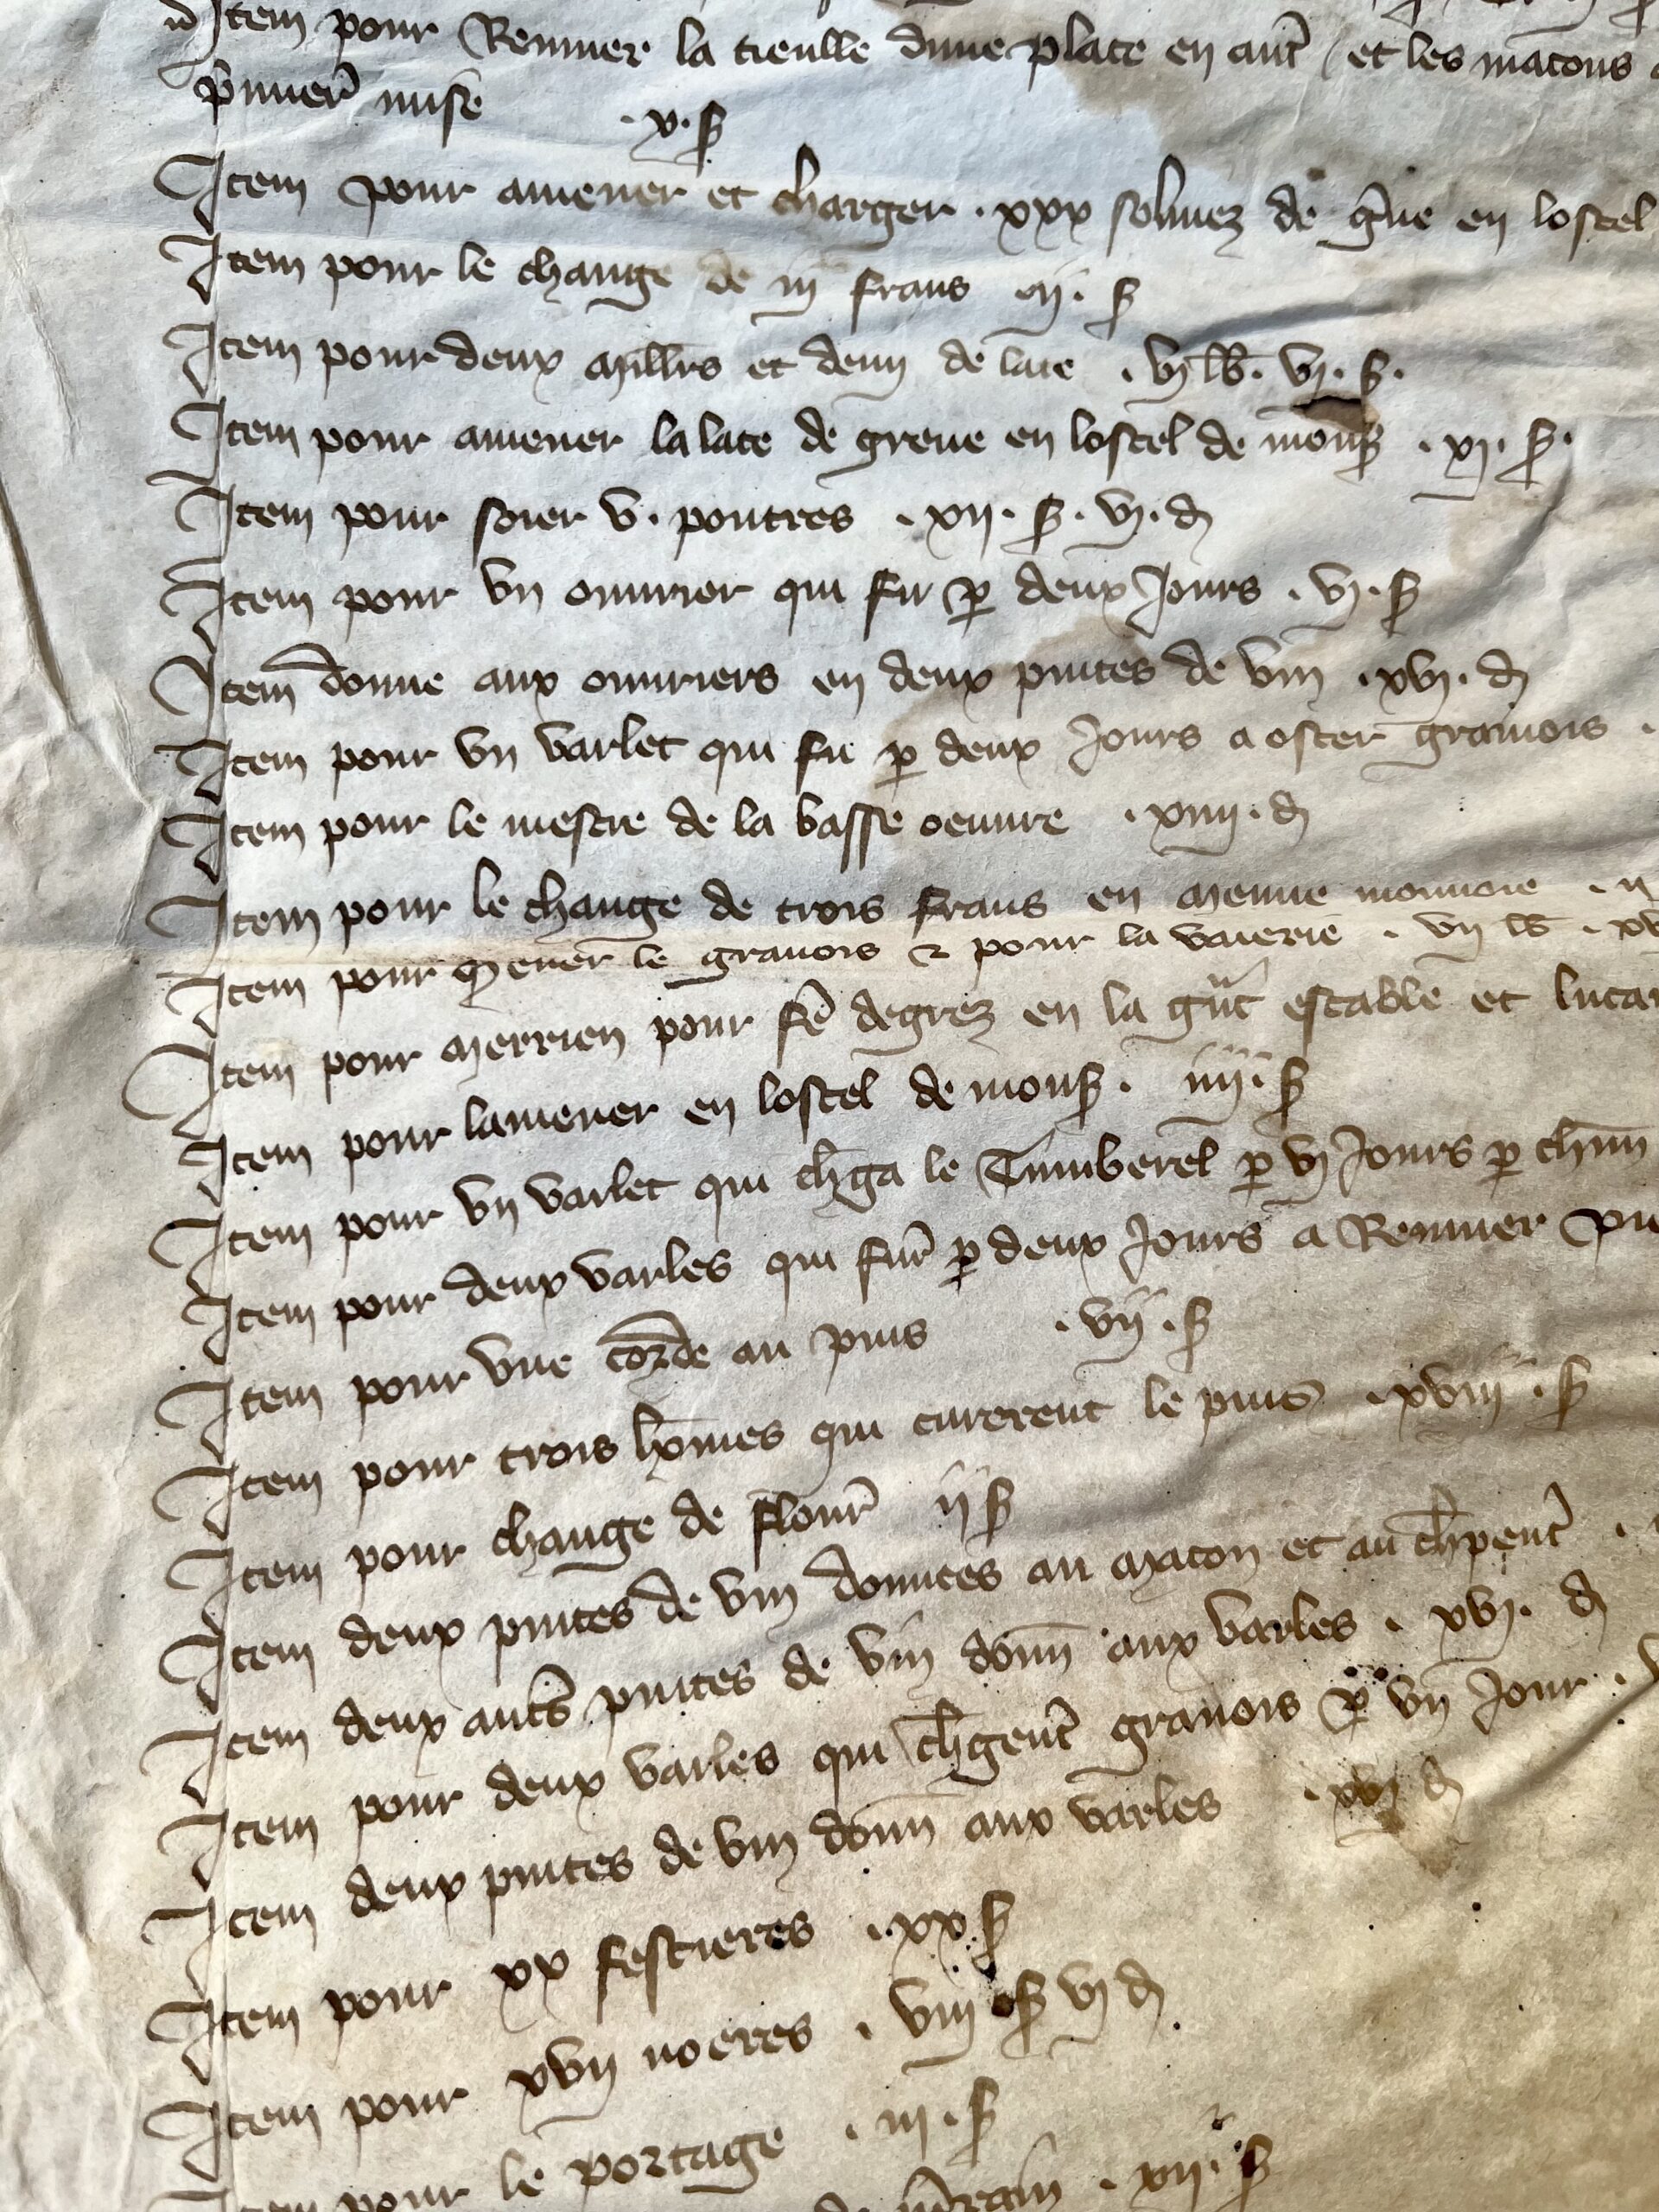 Item pour Remuer la tieulle dune place en aut et les macons
pmier mise . x . s
Item pour amener et charger . xxx soliuez de gue en lostel
Item pour le change de iij frans . ij . s
Item pour deux millrs et demi de late . vj lb . vj . s .
Item pour amener la late de greue en lostel de mons . xj . s .
Item pour soier v . poutres . xij . s . vj . d
Item pour vn ouurier qui fu p deux Jours . vj . s
Item donne aux ouuriers en deux pintes de vin . xvj . d
Item pour vn varlet qui fu p deux Jours a oster grauois .
Item pour le mestre de la basse oeuure . xiiij . d
Item pour le change de trois frans en menue monnoie . ij
Item pour mener le grauois et pour la voierie . vij lb . xv
Item pour merrien pour fe degrez en la gnt estable et lucar
Item pour lamener en lostel de mons . iiij . s
Item pour vn varlet qui chga le Tumberel p vj Jours p chun
Item pour deux varles qui fur p deux Jours a Remuer
Item pour vne corde au puis . vij . s
Item pour trois homes qui curerent le puis . xviij . s
Item pour change de flour ij s
Item deux pintes de vin donnees au macon et au chpent .
Item deux auts pintes de vin donn aux varles . xvj . d
Item pour deux varles qui chgent grauois p vn Jour .
Item deux pintes de vin donn aux varles . xvj d
Item pour xx festieres . xx . s
Item pour xvij noeres . viij s vj d
Item pour le portage . iij . s
de . xij . s